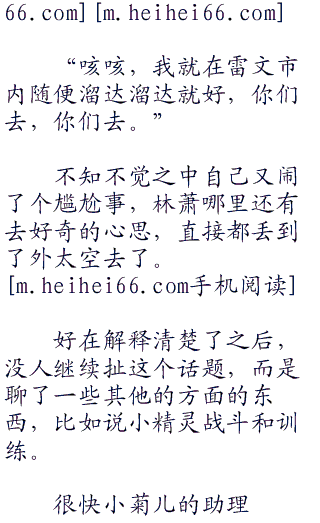 66.com][m.heihei66.com]
“咳咳，我就在雷文市
内随便溜达溜达就好，你们
去，你们去。”
不知不觉之中自己又闹
了个尴尬事，林萧哪里还有
去好奇的心思，直接都丢到
了外太空去了。
[m.heihei66.com手机阅读]
好在解释清楚了之后，
没人继续扯这个话题，而是
聊了一些其他的方面的东
西，比如说小精灵战斗和训
练。
很快小菊儿的助理